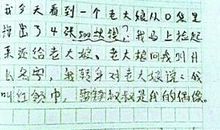 我今天看到一个老大娘从口袋里
掏出了4张500块钱？我马上捡起
来还给老大娘、老大娘问我叫什
么名字，我转身对老大娘说：我
叫红领巾，雷锋叔叔是我的偶像。